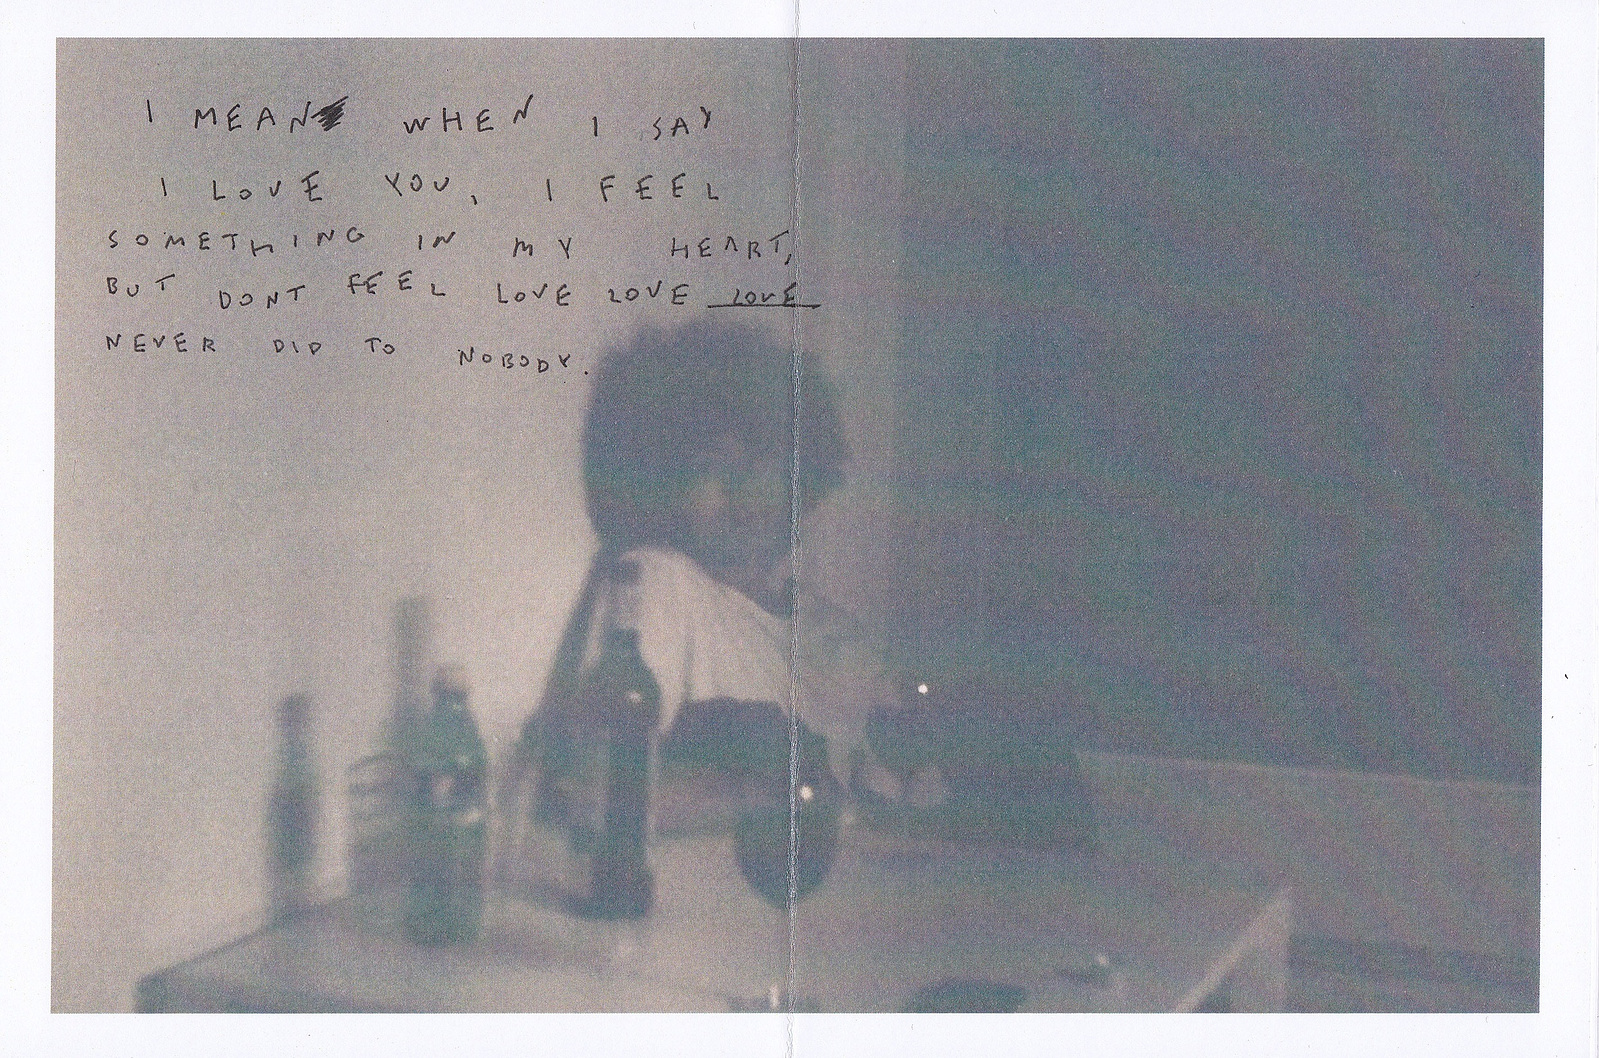 I MEAN WHEN I SAY
I LOVE YOU, I FEEL
SOMETHING IN MY HEART,
BUT DONT FEEL LOVE LOVE LOVE
NEVER DID TO NOBODY.